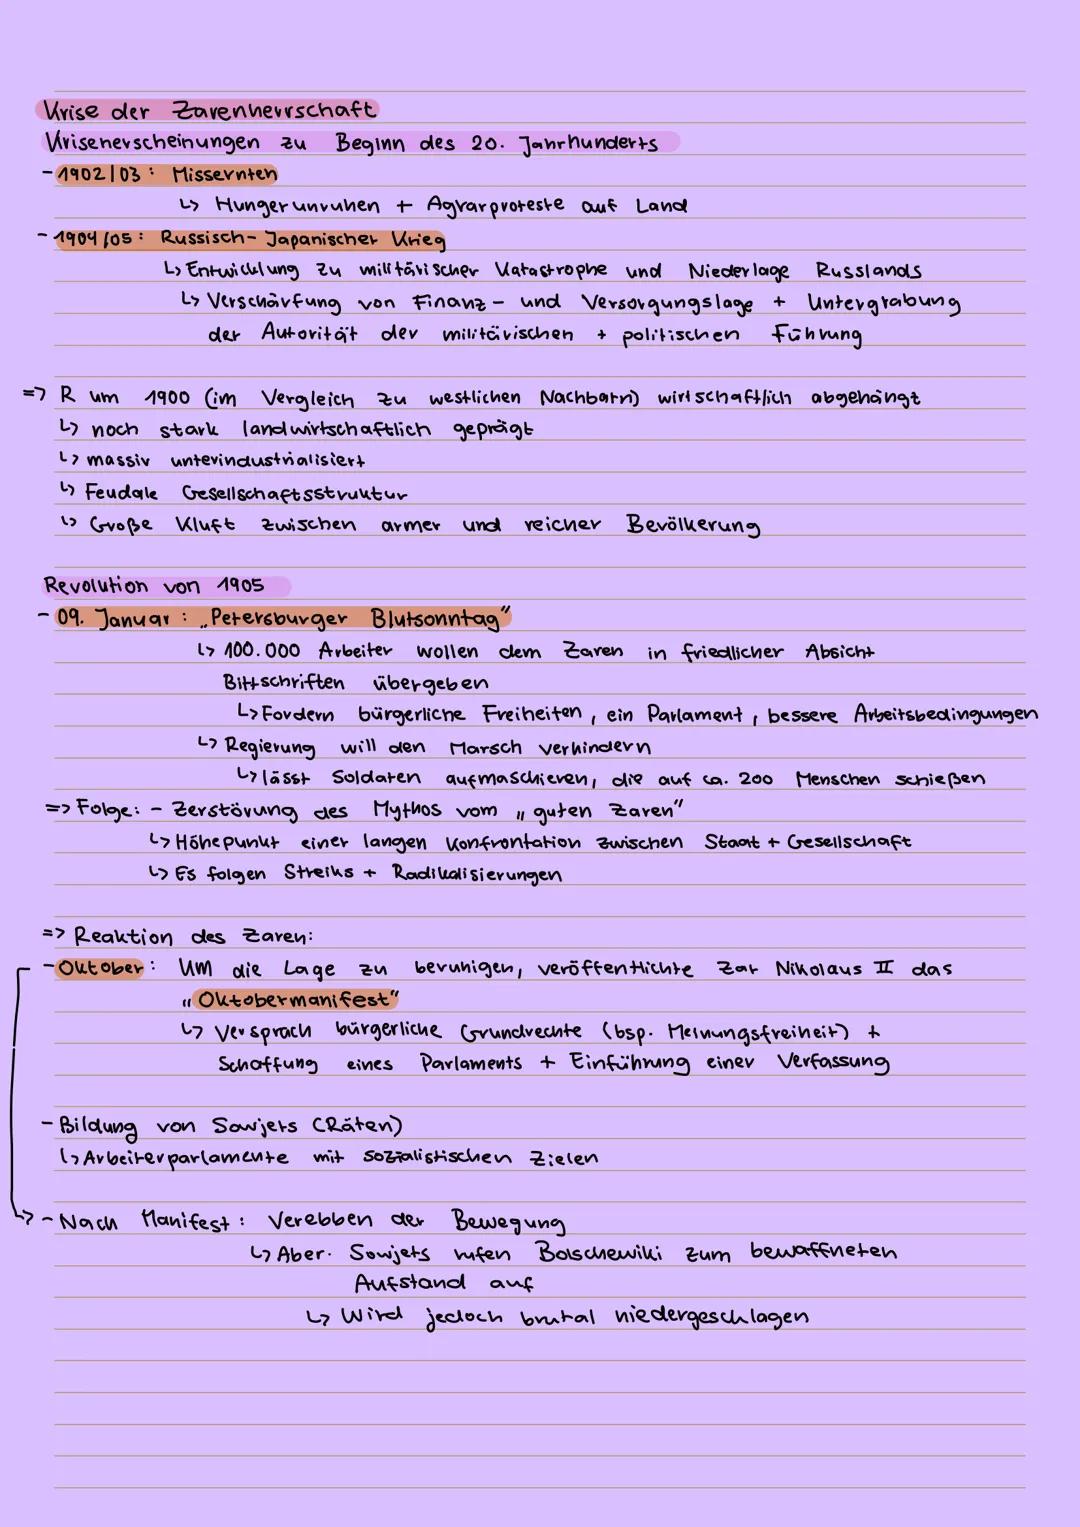 Krise der Zarenherrschaft
Krisenerscheinungen zu Beginn des 20. Jahrhunderts
- 1902/03: Missernten
↳ Hungerunruhen + Agrarproteste auf Land
- 1904/05: Russisch-Japanischer Krieg
↳ Entwicklung zu militärischer Katastrophe und Niederlage Russlands
↳ Verschärfung von Finanz- und Versorgungslage + Untergrabung
der Autorität der militärischen + politischen Führung
=> R um 1900 (im Vergleich zu westlichen Nachbarn) wirtschaftlich abgehängt
↳ noch stark landwirtschaftlich geprägt
↳ massiv unterindustrialisiert
↳ Feudale Gesellschaftsstruktur
↳ Große Kluft zwischen armer und reicher Bevölkerung
Revolution von 1905
- 09. Januar: „Petersburger Blutsonntag"
↳ 100.000 Arbeiter wollen dem Zaren in friedlicher Absicht
Bittschriften übergeben
↳ Fordern bürgerliche Freiheiten, ein Parlament, bessere Arbeitsbedingungen
↳ Regierung will den Marsch verhindern
↳ lässt Soldaten aufmaschieren, die auf ca. 200 Menschen schießen
=> Folge: - Zerstörung des Mythos vom „guten Zaren"
↳ Höhepunkt einer langen Konfrontation zwischen Staat + Gesellschaft
↳ Es folgen Streiks + Radikalisierungen
=> Reaktion des Zaren:
- Oktober: Um die Lage zu beruhigen, veröffentlichte Zar Nikolaus II das
„Oktobermanifest"
↳ Versprach bürgerliche Grundrechte (bsp. Meinungsfreiheit) +
Schaffung eines Parlaments + Einführung einer Verfassung
- Bildung von Sowjets (Räten)
↳ Arbeiterparlamente mit sozialistischen Zielen
- Nach Manifest: Verebben der Bewegung
↳ Aber: Sowjets rufen Bolschewiki zum bewaffneten
Aufstand auf
↳ Wird jedoch brutal niedergeschlagen